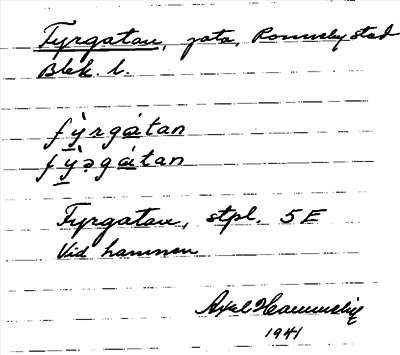 Fyrgatan, gata, Ronneby stad
Blek. l.
fỳrgátan
fỳəgátan
Fyrgatan, stpl. 5 E
Vid hamnen
Axel
1941